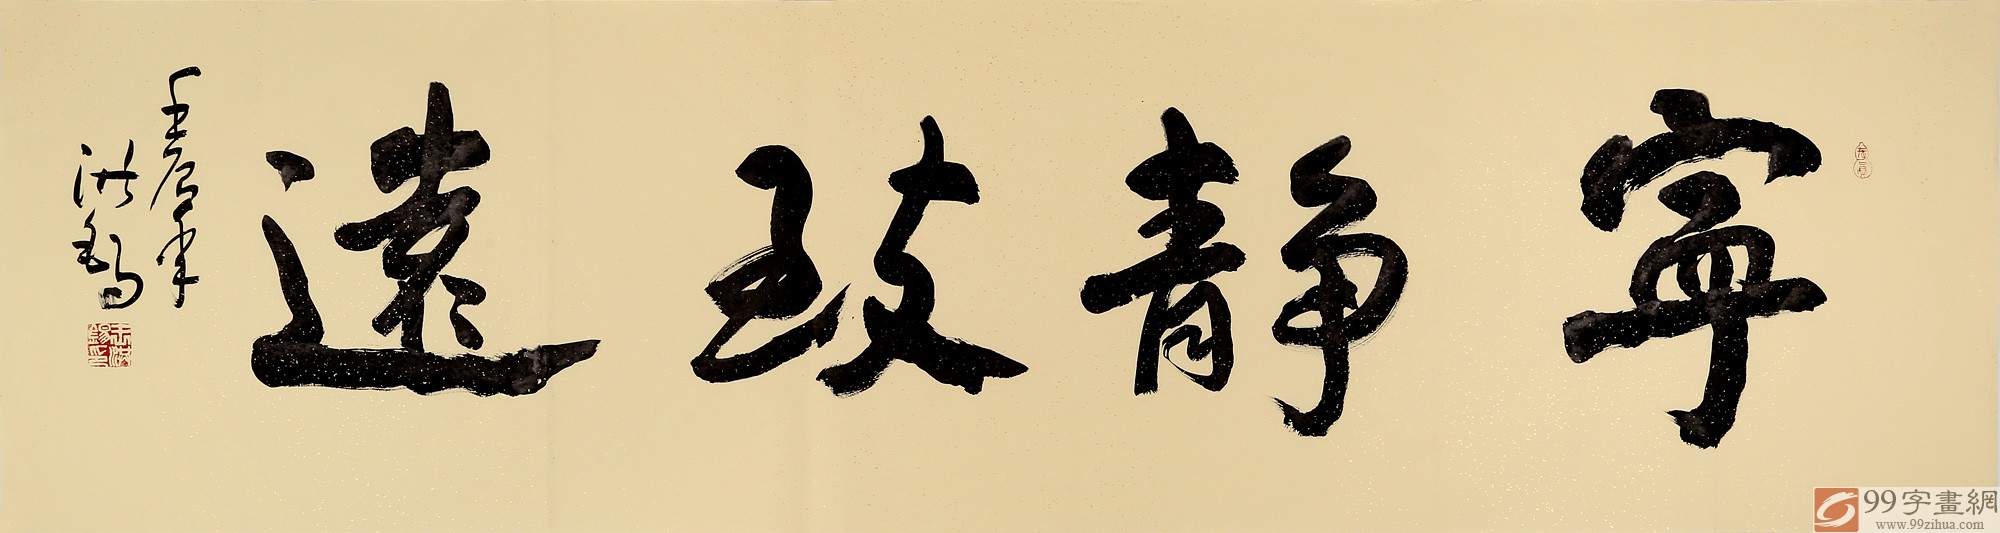 寧靜致遠
壬辰年
洪錫
王洪
錫印
99字畫網
www.99zihua.com